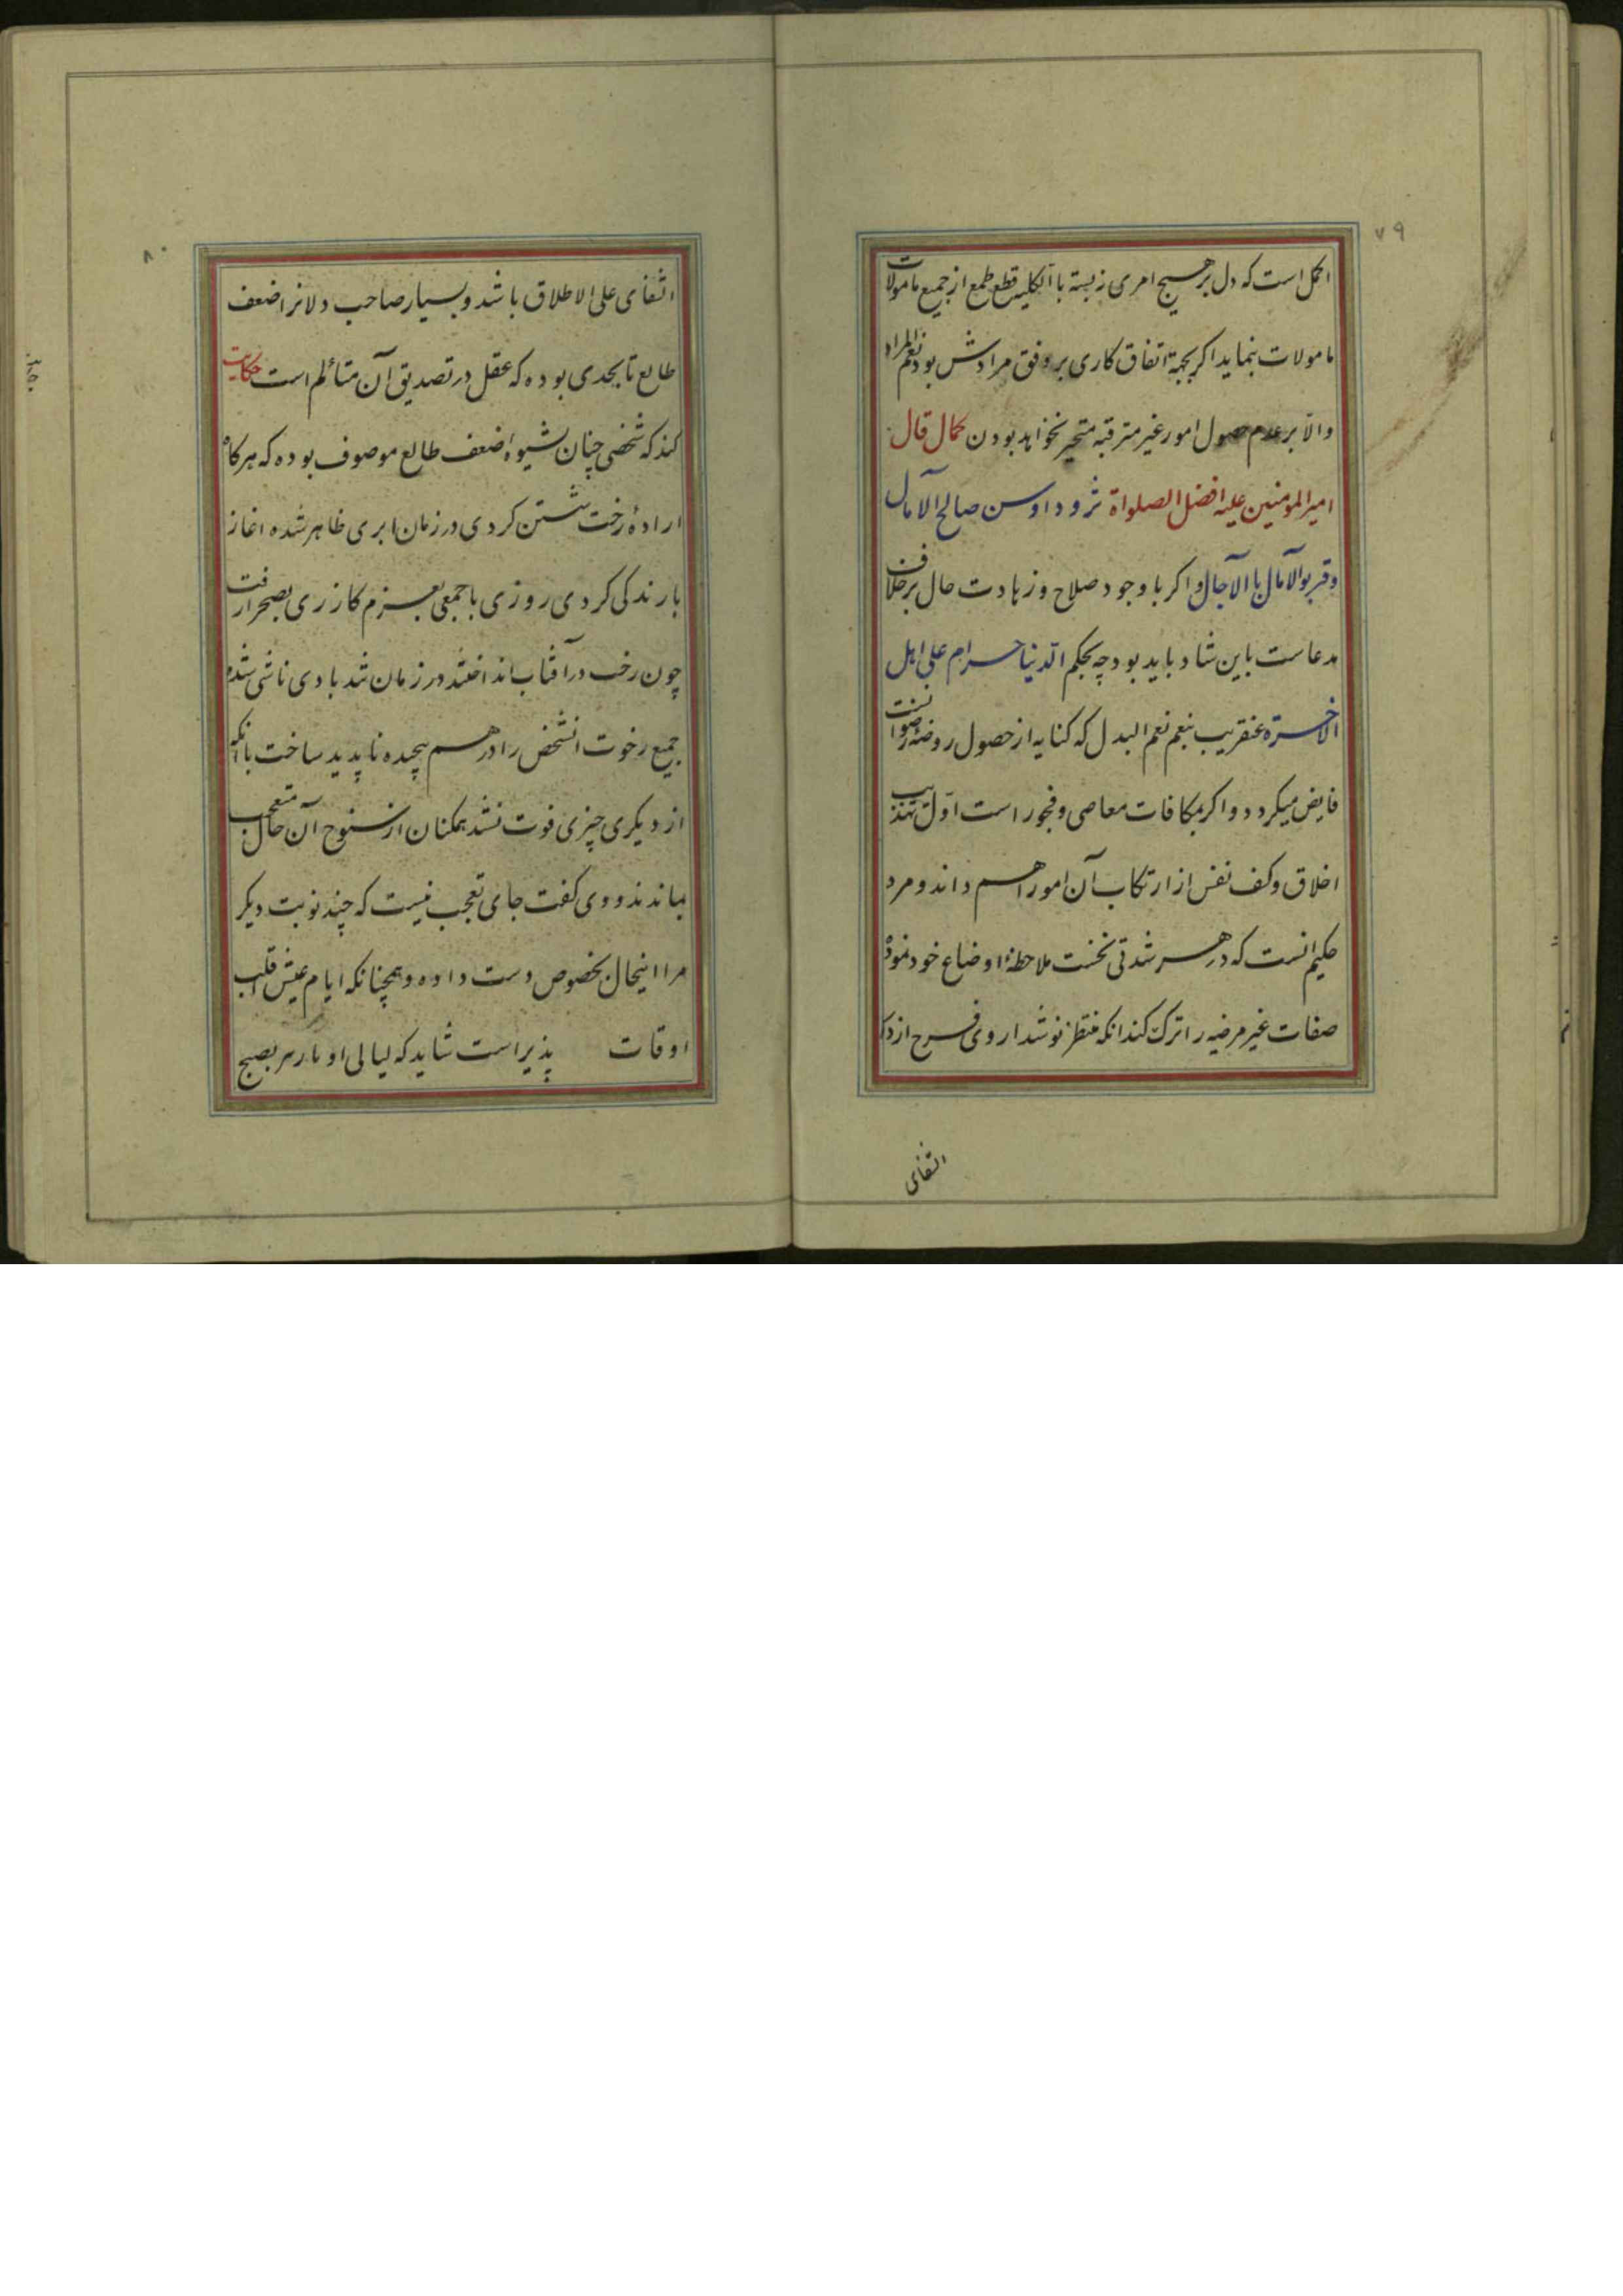 ۷۹
اکمل است که دل بر هیچ امری نبسته باالکلیه قطع طمع از جمیع مامولات
مامولات بنماید اگر بجهة اتفاق کاری بر وفق مرادش بود نعم المراد
والا بر عدم حصول امور غیر مترقبه متحیر نخواهد بودن کمال قال
امیرالمومنین علیه افضل الصلواة صالح الآمال
وقربوا الآمال باالآجال واکر با وجود صلاح وزهادت حال بر خلاف
مدعاست باین شاد باید بود چه بحکم الدنیا حرام علی اهل
الاخرة عنقریب بنعم نعم البدل که کنایه از حصول روضه رضوانست
فایض میکردد واکر بمکافات معاصی وفجور است اوّل تهذیب
اخلاق وکف نفس از ارتکاب آن امور اهم داند ومرد
حکیم انست که در هر شدتی نخست ملاحظهٔ اوضاع خود نموده
صفات غیر مرضیه را ترک کند انکه منتظر نوشداروی فرح از
الشفای
۸۰
الشفای علی الاطلاق باشد وبسیار صاحب دلانرا ضعف
طالع تا بحدی بوده که عقل در تصدیق آن متألم است حکایت
کنند که شخصی چنان بشیوهٔ ضعف طالع موصوف بوده که هرکاه
ارادهٔ رخت شستن کردی در زمان ابری ظاهر شده اغاز
بارندکی کردی روزی با جمعی بعزم کازری بصحرا رفت
چون رخت در آفتاب انداختند در زمان تند بادی ناشی شده
جمیع رخوت انشخص را در هم پیچیده ناپدید ساخت با انکه
از دیکری چیزی فوت نشد همکنان از سنوح آن حال متعجب
بماندند ووی کفت جای تعجب نیست که چند نوبت دیکر
مرا اینحال بخصوص دست داده وهمچنانکه ایام عیش قلب
اوقات پذیر است شاید که لیالی او بصبح